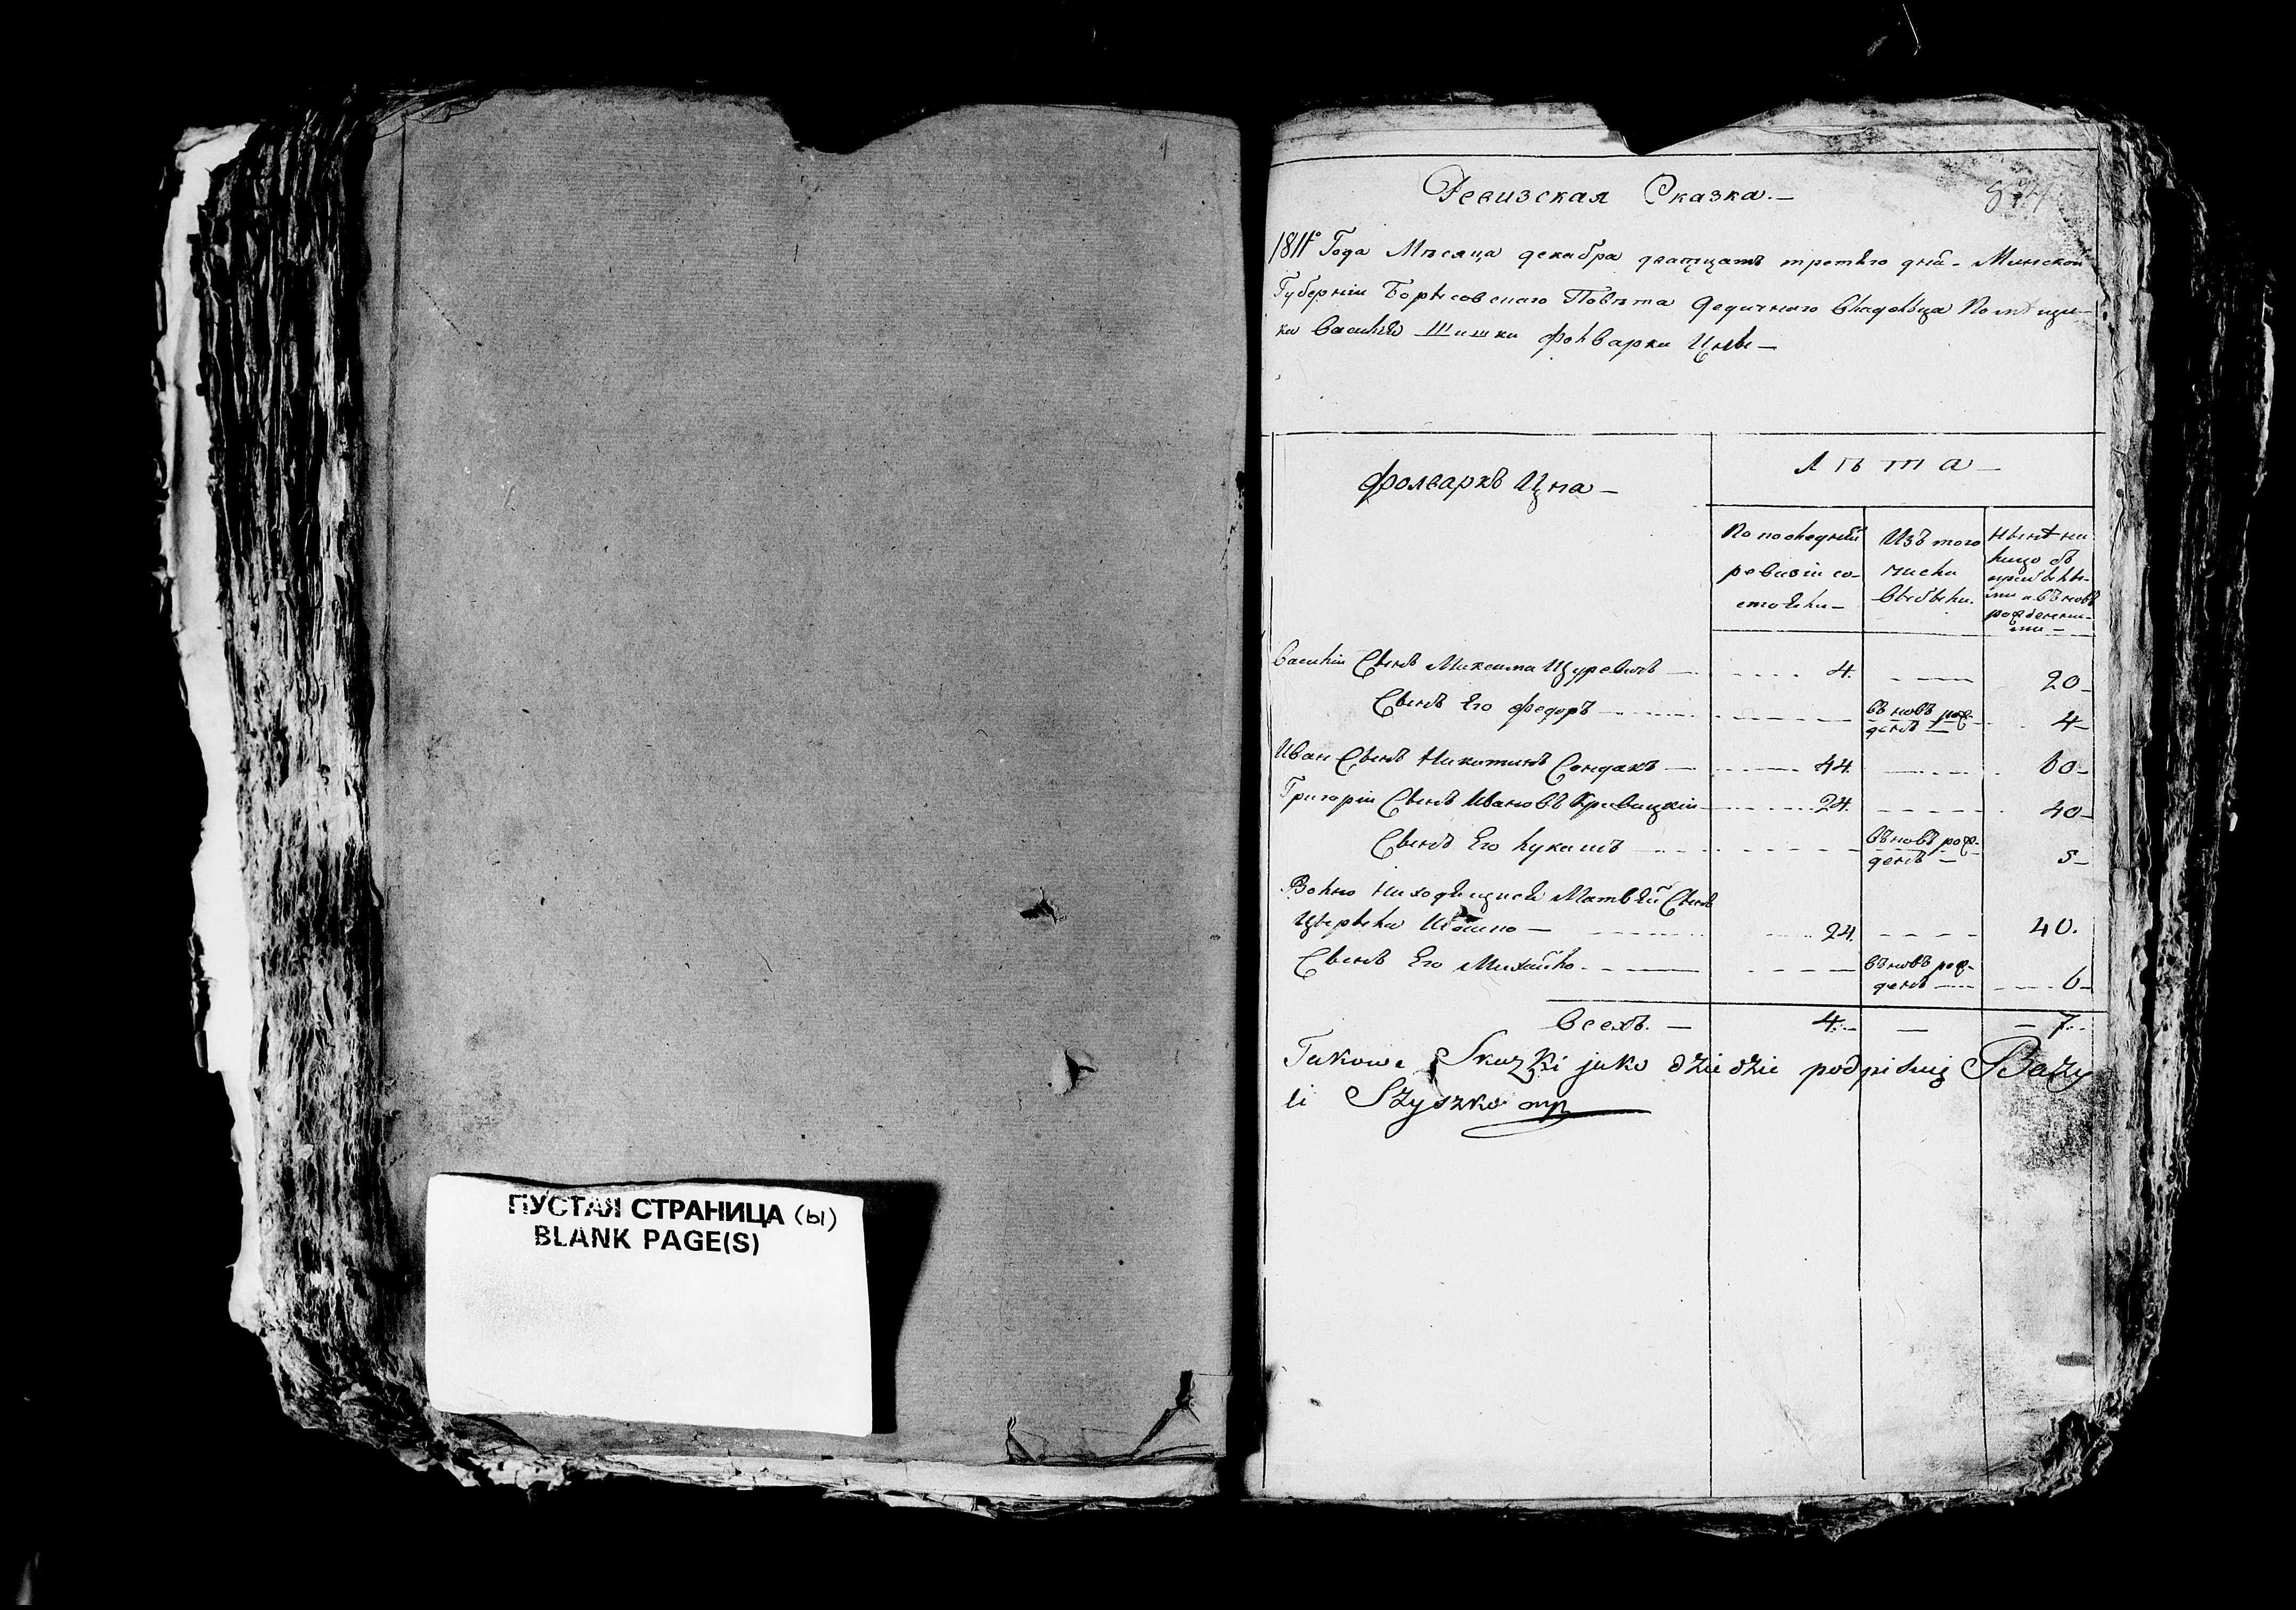 ПУСТАЯ СТРАНИЦА (ы)
BLANK PAGE(S)
Ревизская Сказка.—
1811го Года Мѣсяца декабра дваццать третього дня - Минской
Губернiи Борысовскаго Повѣта Дедичнаго Владельца Помѣщи-
ка Василiя Шишки фольварки Цны —
Фолваркъ Цна —
Лѣта —
По последней ревизiи состояли —
Изъ того числа выбыли.
Нынѣ на лицо съ прибылыми и вновь рожденными —
Василiй Сынъ Максима Щуревичъ — 4. 20 —
Сынъ Его Федоръ вновь рожденъ — 4 —
Иван Сынъ Никитинъ Сондакъ — 44. 60 —
Григорiй Сынъ Ивановъ Кривицкiй 24. 40 —
Сынъ Его Лукашъ вновь рожденъ — 5 —
Вольно Находящися Матвей Сынъ
24. 40.
Сынъ Его Михайло вновь рожденъ 6 —
Всехъ. — 4. — — 7.
Takowe Skazki jako dziedzic podpisuię Bazy
li Szyszko mp